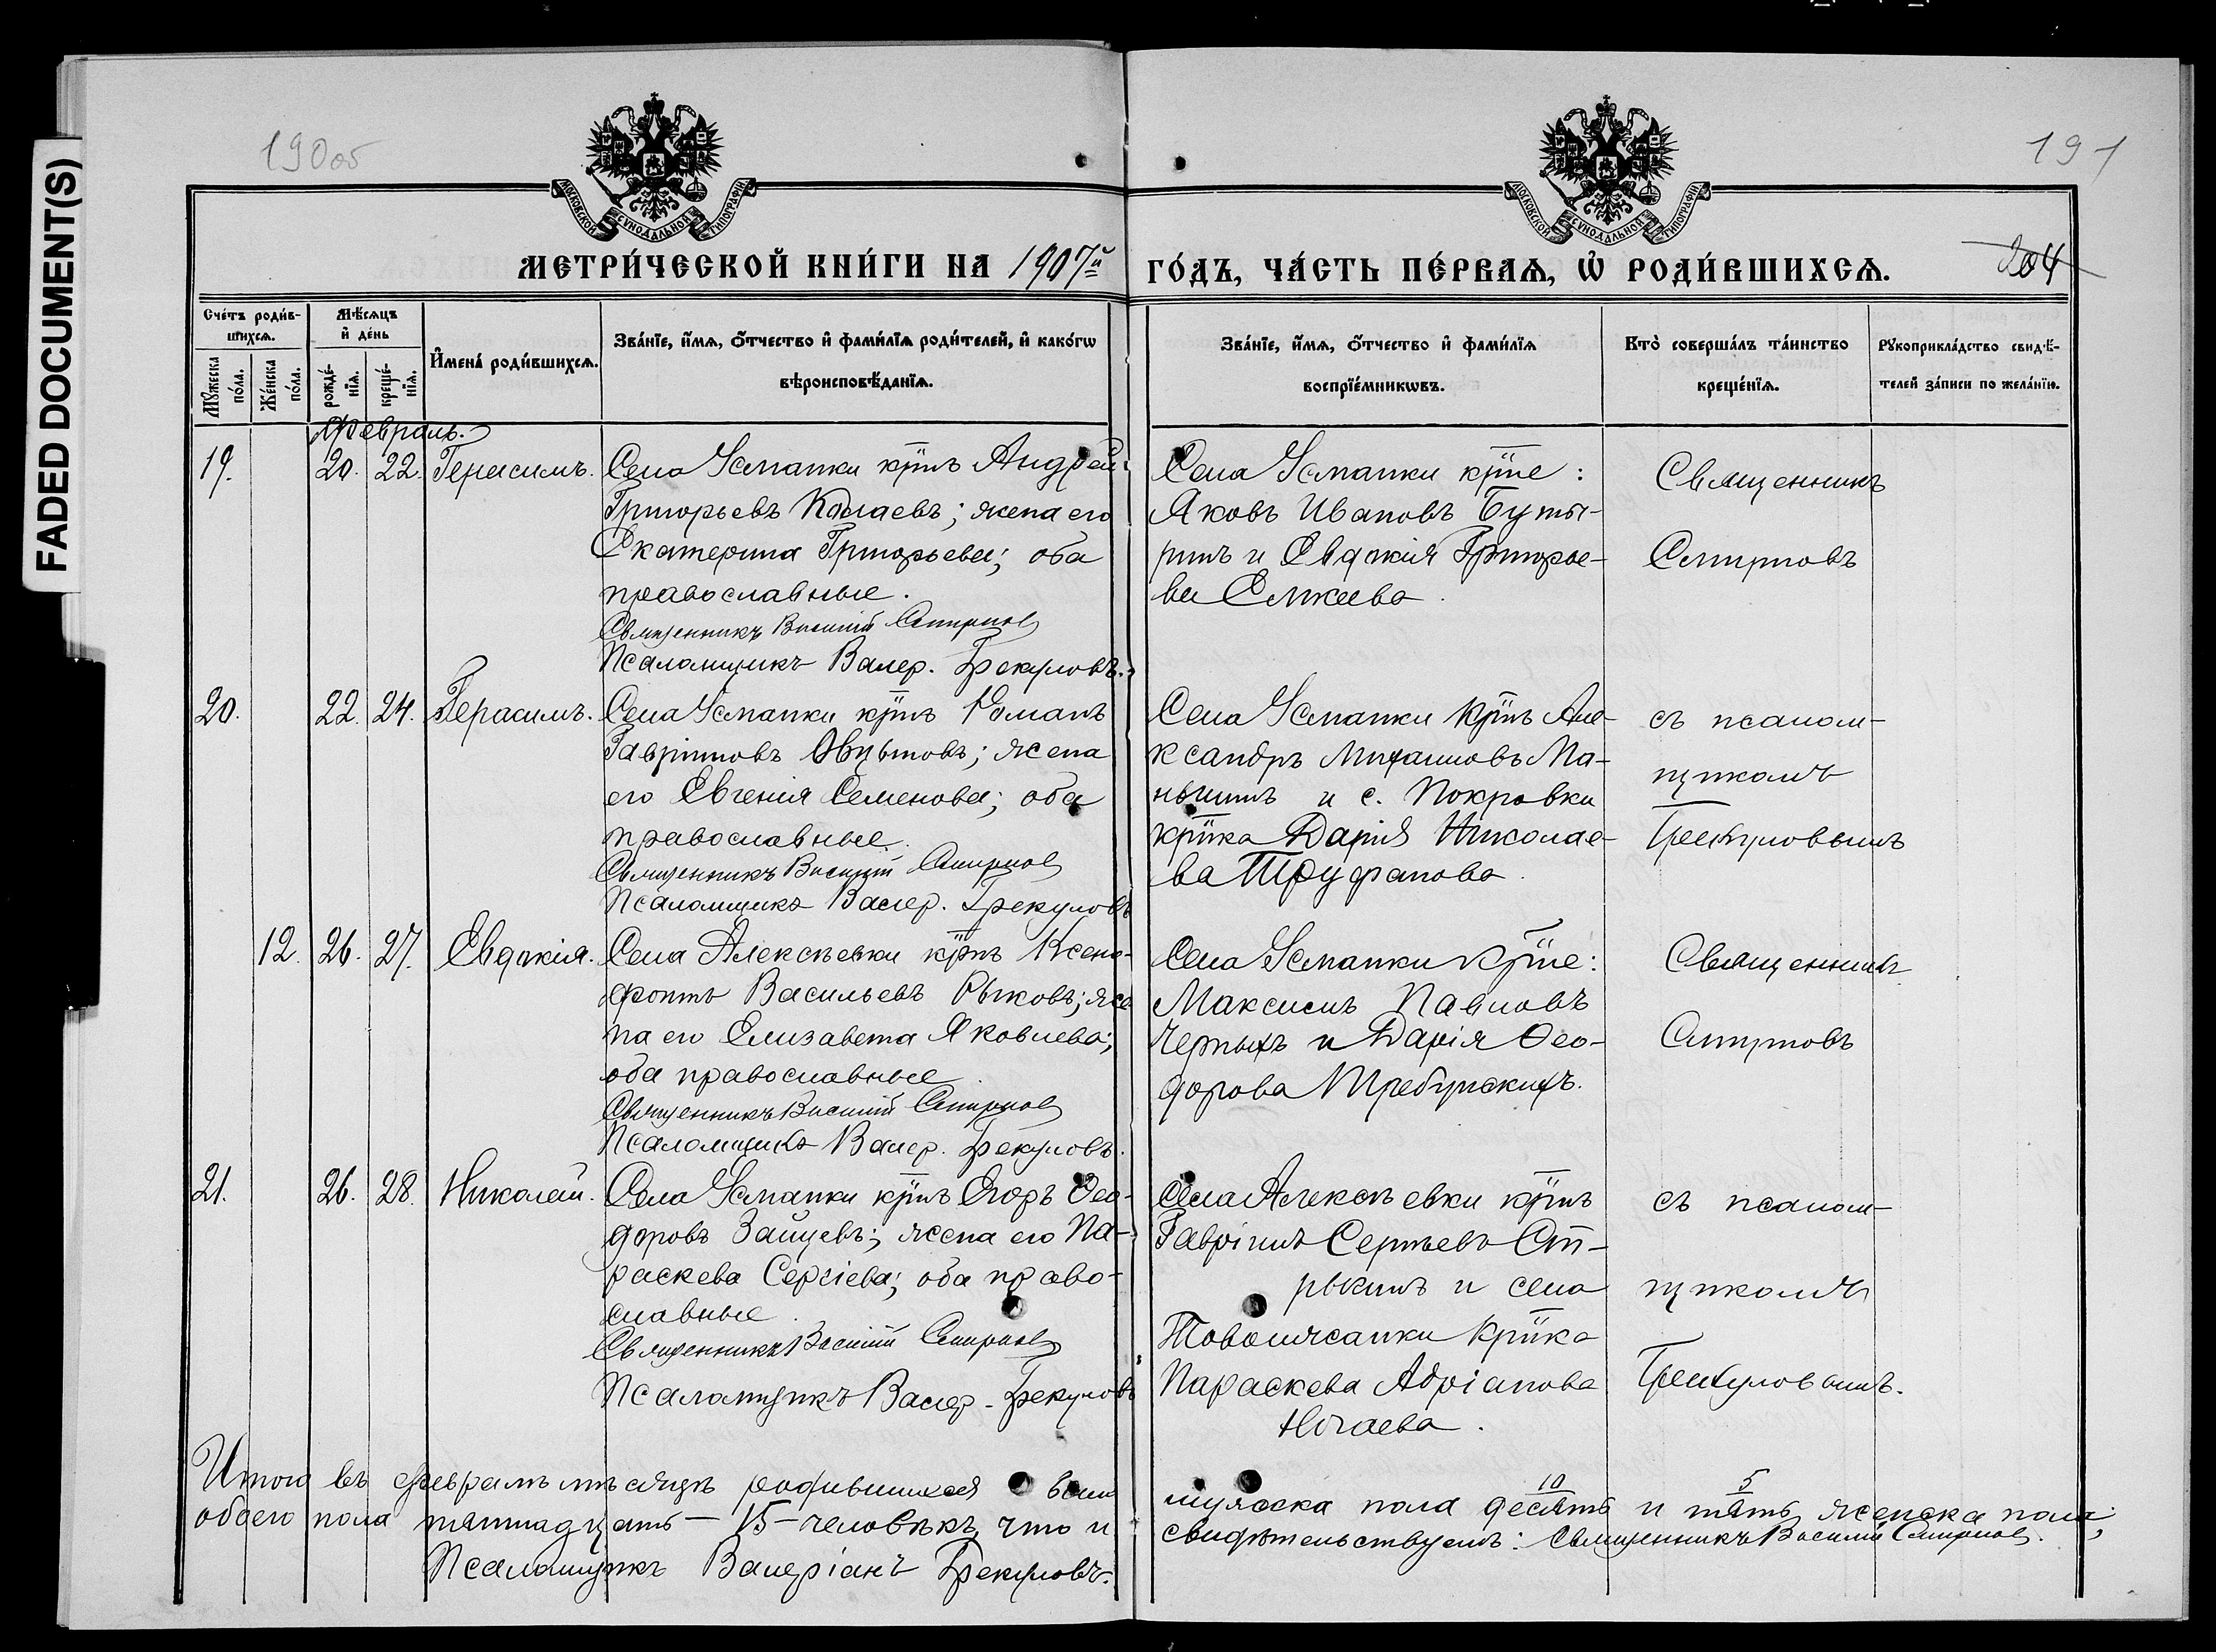 FADED DOCUMENT(S)
190об
191
МОСКОВСКОЙ СѴНОДАЛЬНОЙ ТИПОГРАФІИ
МОСКОВСКОЙ СѴНОДАЛЬНОЙ ТИПОГРАФІИ
МЕТРИ́ЧЕСКОЙ КНИ́ГИ НА 1907й
ГО́ДЪ, ЧА́СТЬ ПЕ́РВАѦ, Ѡ҆ РОДИ́ВШИХСѦ.
204
Сче́тъ роди́в-
шихсѧ.
Мꙋ́жеска по́ла.
Же́нска по́ла.
Мѣ́сѧцъ и҆ де́нь
рожде́-нїѧ.
креще́-нїѧ.
И҆мена̀ роди́вшихсѧ.
Зва́нїе, и҆́мѧ, ѻ҆́тчество и҆ фами́лїѧ роди́телей, и҆ како́гѡ
вѣроисповѣ́данїѧ.
Зва́нїе, и҆́мѧ, ѻ҆́тчество и҆ фами́лїѧ
воспрїе́мникѡвъ.
Кто̀ соверша́лъ та́инство
креще́нїѧ.
Рꙋкоприкла́дство свидѣ́-
телей за́писи по жела́нїю.
Февраль.
19. 20. 22. Герасимъ.
Села Усманки кр̃нъ Андрей
Григорьевъ; жена его
Екатерина Григорьева; оба
православные.
Священникъ Василій Смирнов
Псаломщикъ Валер. Грекуловъ.
Села Усманки кр̃не:
Яковъ Ивановъ Буты-
ринъ и Евдокія Григорье-
ва
Священникъ
Смирновъ
20. 22. 24. Герасимъ.
Села Усманки кр̃нъ Романъ
Гавріиловъ; жена
его Евгенія Семенова; оба
православные.
Священникъ Василій Смирнов
Псаломщикъ Валер. Грекуловъ
Села Усманки кр̃нъ Але-
ксандръ Михаиловъ Па-
ньшинъ и с. Покровки
кр̃нка Дарія Николае-
ва Труфанова.
съ псалом-
щикомъ
Грекуловымъ
12. 26. 27. Евдокія.
Села Алексѣевки кр̃нъ Ксено-
фонтъ Васильевъ Рыковъ; же-
на его Елизавета Яковлева;
оба православные.
Священникъ Василій Смирнов
Псаломщикъ Валер. Грекуловъ.
Села Усманки кр̃не:
Максимъ Павловъ
Черныхъ и Дарія Ѳео-
дорова Требунскихъ.
Священникъ
Смирновъ
21. 26. 28. Николай.
Села Усманки кр̃нъ Егоръ Ѳео-
доровъ Зайцевъ; жена его Па-
раскева Сергіева; оба право-
славные.
Священникъ Василій Смирнов
Псаломщикъ Валер. Грекуловъ
Села Алексѣевки кр̃нъ
Гавріилъ Сергѣевъ Ст-
рыкинъ и села
Товолжанки кр̃нка
Параскева Адріанова
Ногаева.
съ псалом-
щикомъ
Грекуловымъ.
Итого въ февралѣ мѣсяцѣ родившихся всего
мужска пола десять 10 и пять 5 женска пола;
обоего пола пятнадцать – 15 – человѣкъ, что и
свидѣтельствуемъ: Священникъ Василій Смирнов.
Псаломщикъ Валеріанъ Грекуловъ.